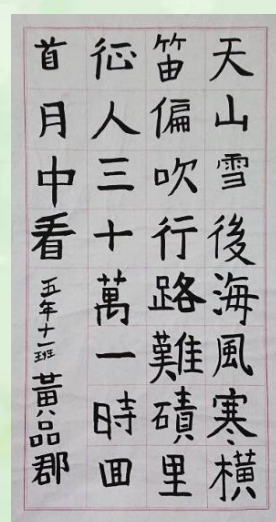 天山雪後海風寒橫
笛偏吹行路難磧里
征人三十萬一時回
首月中看
五年十一班
黃品郡